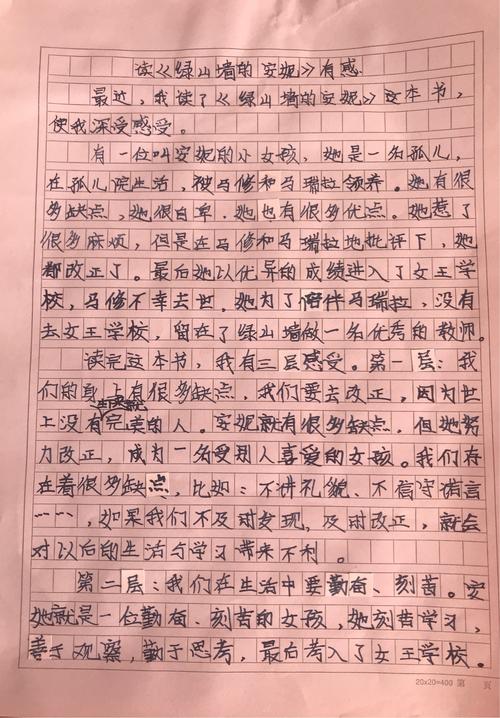 读《绿山墙的安妮》有感
最近，我读了《绿山墙的安妮》这本书，
使我深受感受。
有一位叫安妮的小女孩，她是一名孤儿，
在孤儿院生活，被马修和马瑞拉领养。她有很
多缺点，她很自卑，她也有很多优点。她惹了
很多麻烦，但是在马修和马瑞拉地批评下，她
都改正了。最后她以优异的成绩进入了女王学
校，马修不幸去世，她为了陪伴马瑞拉，没有
去女王学校，留在了绿山墙做一名优秀的教师。
读完这本书，我有三层感受。第一层：我
们的身上有很多缺点，我们要去改正，因为世
上没有完美的人。安妮就有很多缺点，但她努
力改正，成为一名受别人喜爱的女孩。我们存
在着很多缺点，比如：不讲礼貌、不信守诺言
……，如果我们不及时发现，及时改正，就会
对以后的生活与学习带来不利。
第二层：我们在生活中要勤奋、刻苦。安
妮就是一位勤奋、刻苦的女孩，她刻苦学习，
善于观察，勤于思考，最后考入了女王学校。
20×20=400 第 页